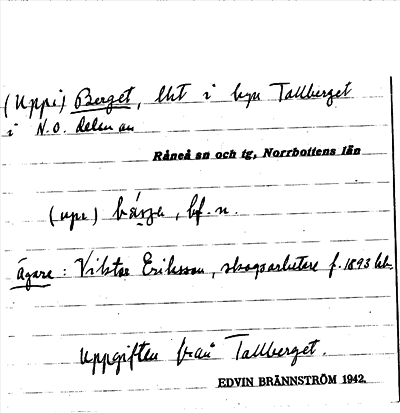 (Uppi) Berget, lht i byn Tallberget
i N.O. delen av
Råneå sn och tg, Norrbottens län
(upi) , bf. n.
Ägare: Viktor Eriksson, skogsarbetare f. 1893
Uppgiften från Tallberget.
EDVIN BRÄNNSTRÖM 1942.